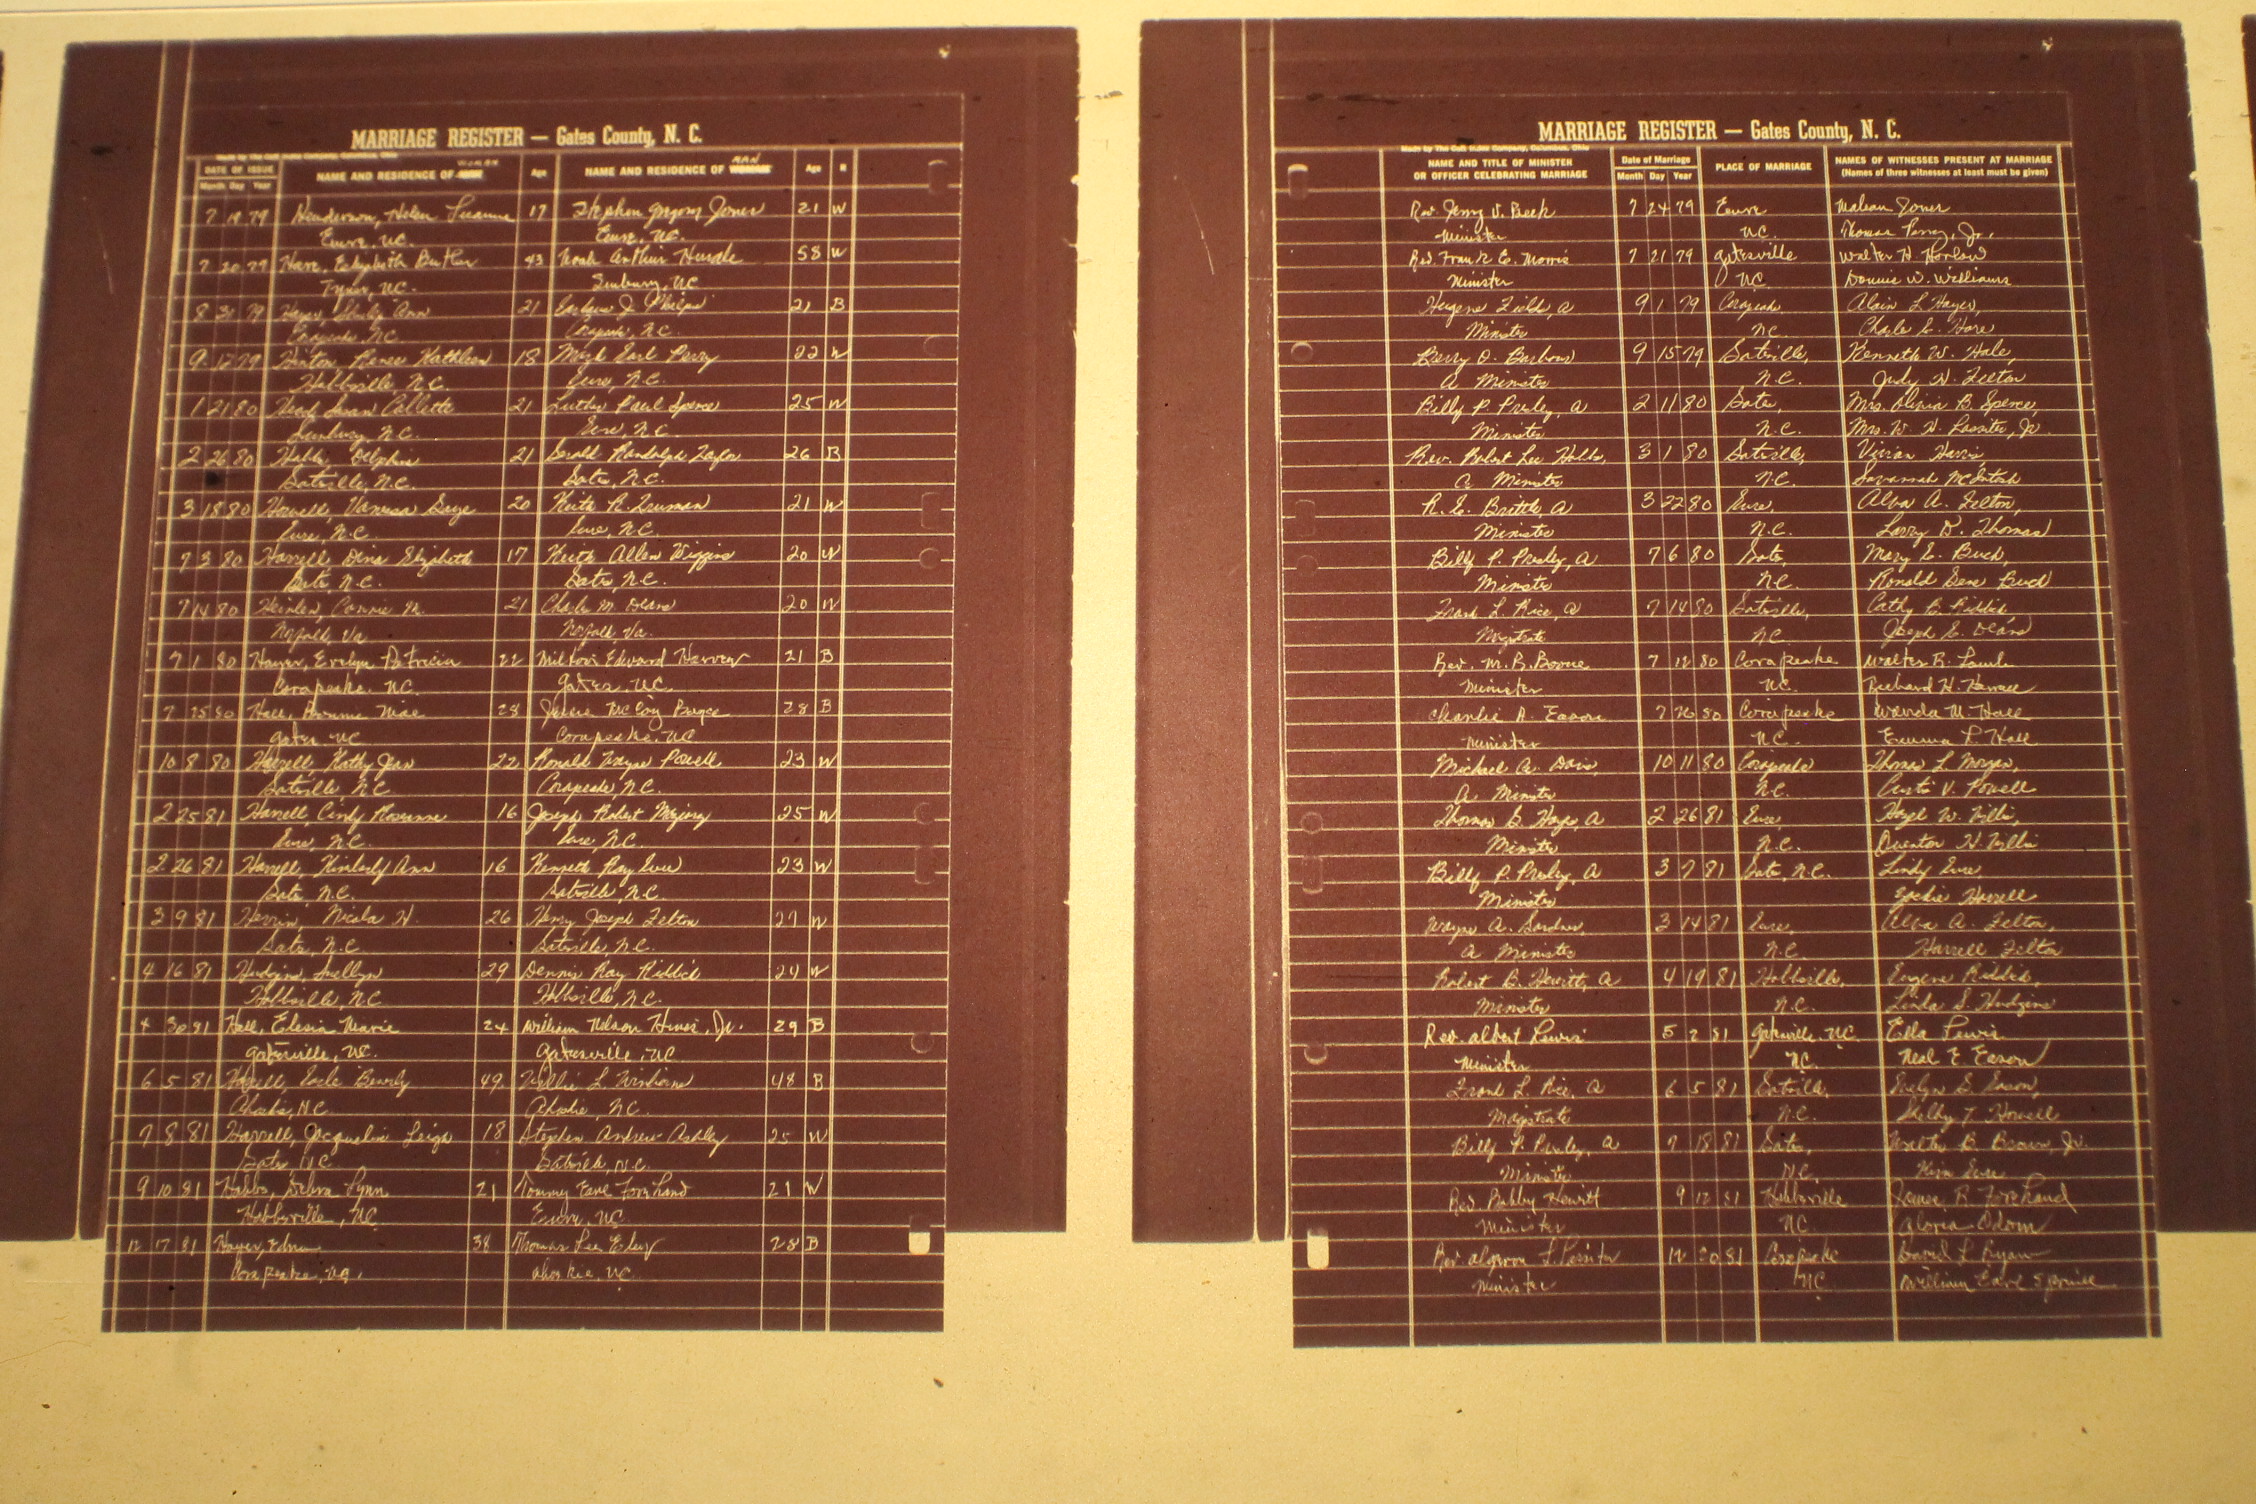 MARRIAGE REGISTER — Gates County, N. C.
WOMAN MAN
DATE OF ISSUE NAME AND RESIDENCE OF Age NAME AND RESIDENCE OF Age R
Month Day Year
7 19 79 Henderson, Helen 17 Stephen Gregory Jones 21 W
Eure, NC. Eure, NC.
7 20 79 Hare, Elizabeth Butler 43 Noah Arthur Hurdle 58 W
Tyner, NC. Sunbury, NC
8 31 79 Hayes, Shirley Ann 21 J. Phelps 21 B
Corapeake, NC Corapeake, N.C.
9 12 79 Hinton, Renee Kathleen 18 Mark Earl Perry 22 W
Hobbsville, N.C. Eure, N.C.
1 21 80 Head, Susan Collette 21 Luther Paul Spence 25 W
Sunbury, N.C. Eure, N.C.
2 26 80 Hobbs, Delphine 21 Gerald Randolph Taylor 26 B
Gatesville, N.C. Gates, N.C.
3 18 80 Howell, Vanessa Gaye 20 Keith R. Truman 21 W
Eure, N.C. Eure, N.C.
7 3 80 Harrell, Dina Elizabeth 17 Keith Allen Wiggins 20 W
Gates, N.C. Gates, N.C.
7 14 80 Connie M. 21 Charles M. Deans 20 W
Norfolk, Va Norfolk, Va.
7 1 80 Hayes, Evelyn Patricia 22 Milton Edward Harvey 21 B
Corapeake, NC. Gates, NC.
7 25 80 Hall, Bonnie Mae 28 Jessie McCoy Boyce 28 B
Gates, NC Corapeake, NC
10 8 80 Harrell, Kathy Jean 22 Ronald Wayne Powell 23 W
Gatesville, N.C. Corapeake, N.C.
2 25 81 Harrell, Cindy Roseanne 16 Joseph Robert 25 W
Eure, N.C. Eure, N.C.
2 26 81 Harrell, Kimberly Ann 16 Kenneth Ray Eure 23 W
Gates, N.C. Gatesville, N.C.
3 9 81 Nicola H. 26 Henry Joseph Felton 27 W
Gates, N.C. Gatesville, N.C.
4 16 81 Hudgins, Suellyn 29 Dennis Ray Riddick 24 W
Hobbsville, N.C. Hobbsville, N.C.
4 30 81 Hall, Elesia Marie 24 William Nelson Hines, Jr. 29 B
Gatesville, NC. Gatesville, NC
6 5 81 Beverly 49 Willie L. 48 B
Ahoskie, N.C. Ahoskie, N.C.
7 8 81 Harrell, Jacqueline Leigh 18 Stephen Andrew Ashley 25 W
Gates, N.C. Gatesville, N.C.
9 10 81 Hobbs, Debra Lynn 21 Tommy Earl Forehand 21 W
Hobbsville, NC Eure, NC
12 17 81 Hayes, Edna 38 Thomas Lee Eley 28 B
Corapeake, NC. Ahoskie, NC.
MARRIAGE REGISTER — Gates County, N. C.
NAME AND TITLE OF MINISTER Date of Marriage PLACE OF MARRIAGE NAMES OF WITNESSES PRESENT AT MARRIAGE
OR OFFICER CELEBRATING MARRIAGE Month Day Year (Names of three witnesses at least must be given)
Rev. Jerry V. Beck 7 24 79 Eure Jones
Minister NC. Thomas Perry, Jr.
Rev. Frank E. Morris 7 21 79 Gatesville Walter H.
Minister NC Donnie W. Williams
Eugene Fields, a 9 1 79 Corapeake L. Hayes,
Minister NC Charles C. Hare
Perry O. Barbour 9 15 79 Gatesville, Kenneth W. Hale,
a Minister N.C. Judy H. Felton
Billy P. Presley, a 2 11 80 Gates, Mrs. Olivia B. Spence,
Minister N.C. Mrs. W. H. Lassiter, Jr.
Rev. Robert Lee Hobbs, 3 1 80 Gatesville, Vivian Harris
a Minister N.C. Savannah McIntosh
R. E. Brittle, a 3 22 80 Eure, Alva A. Felton,
Minister N.C. Larry D. Thomas
Billy P. Presley, a 7 6 80 Gates, Mary E. Buck,
Minister N.C. Ronald Gene Buck
Frank L. Rice, a 7 14 80 Gatesville, Cathy B. Riddick
Magistrate N.C. Joseph E. Deans
Rev. M. R. Boone 7 12 80 Corapeake Walter R. Lamb
Minister NC. Richard H. Harrell
Charlie A. Eason 7 26 80 Corapeake Wanda M. Hall
Minister NC. Emma P. Hall
Michael A. Davis, 10 11 80 Corapeake Thomas L. Morgan,
a Minister N.C. Curtis V. Powell
Thomas B. Hays, a 2 26 81 Eure, Hazel W. Willis,
Minister N.C. Quenton H. Willis
Billy P. Presley, a 3 7 81 Gates, N.C. Lindy Eure
Minister Goldie Harrell
Wayne A. Gardner, 3 14 81 Eure, Alva A. Felton,
a Minister N.C. Harrell Felton
Robert B. Hewitt, a 4 19 81 Hobbsville, Eugene Riddick,
Minister N.C. Linda S. Hudgins
Rev. Albert Lewis 5 2 81 Gatesville, NC Ella Lewis
Minister NC. Neal E. Eason
Frank L. Rice, a 6 5 81 Gatesville, Evelyn S. Eason,
Magistrate N.C. Shelby T. Howell
Billy P. Presley, a 7 18 81 Gates, Walter B. Brown, Jr.
Minister N.C. Kim Eure
Rev. Bobby Hewitt 9 12 81 Hobbsville James R. Forehand
Minister NC. Gloria Odom
Rev 12 20 81 Corapeake David L. Ryan
Minister NC. William Earl Spruill